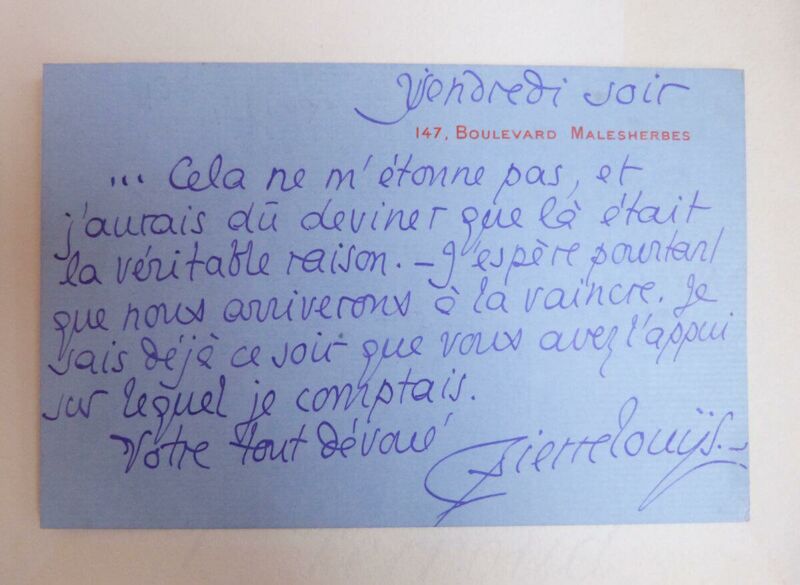 Vendredi soir
147, BOULEVARD MALESHERBES
... Cela ne m'étonne pas, et
j'aurais dû deviner que là était
la véritable raison. – J'espère pourtant
que nous arriverons à la vaincre. Je
sais déjà ce soir que vous avez l'appui
sur lequel je comptais.
Votre tout dévoué
Pierre Louÿs. –